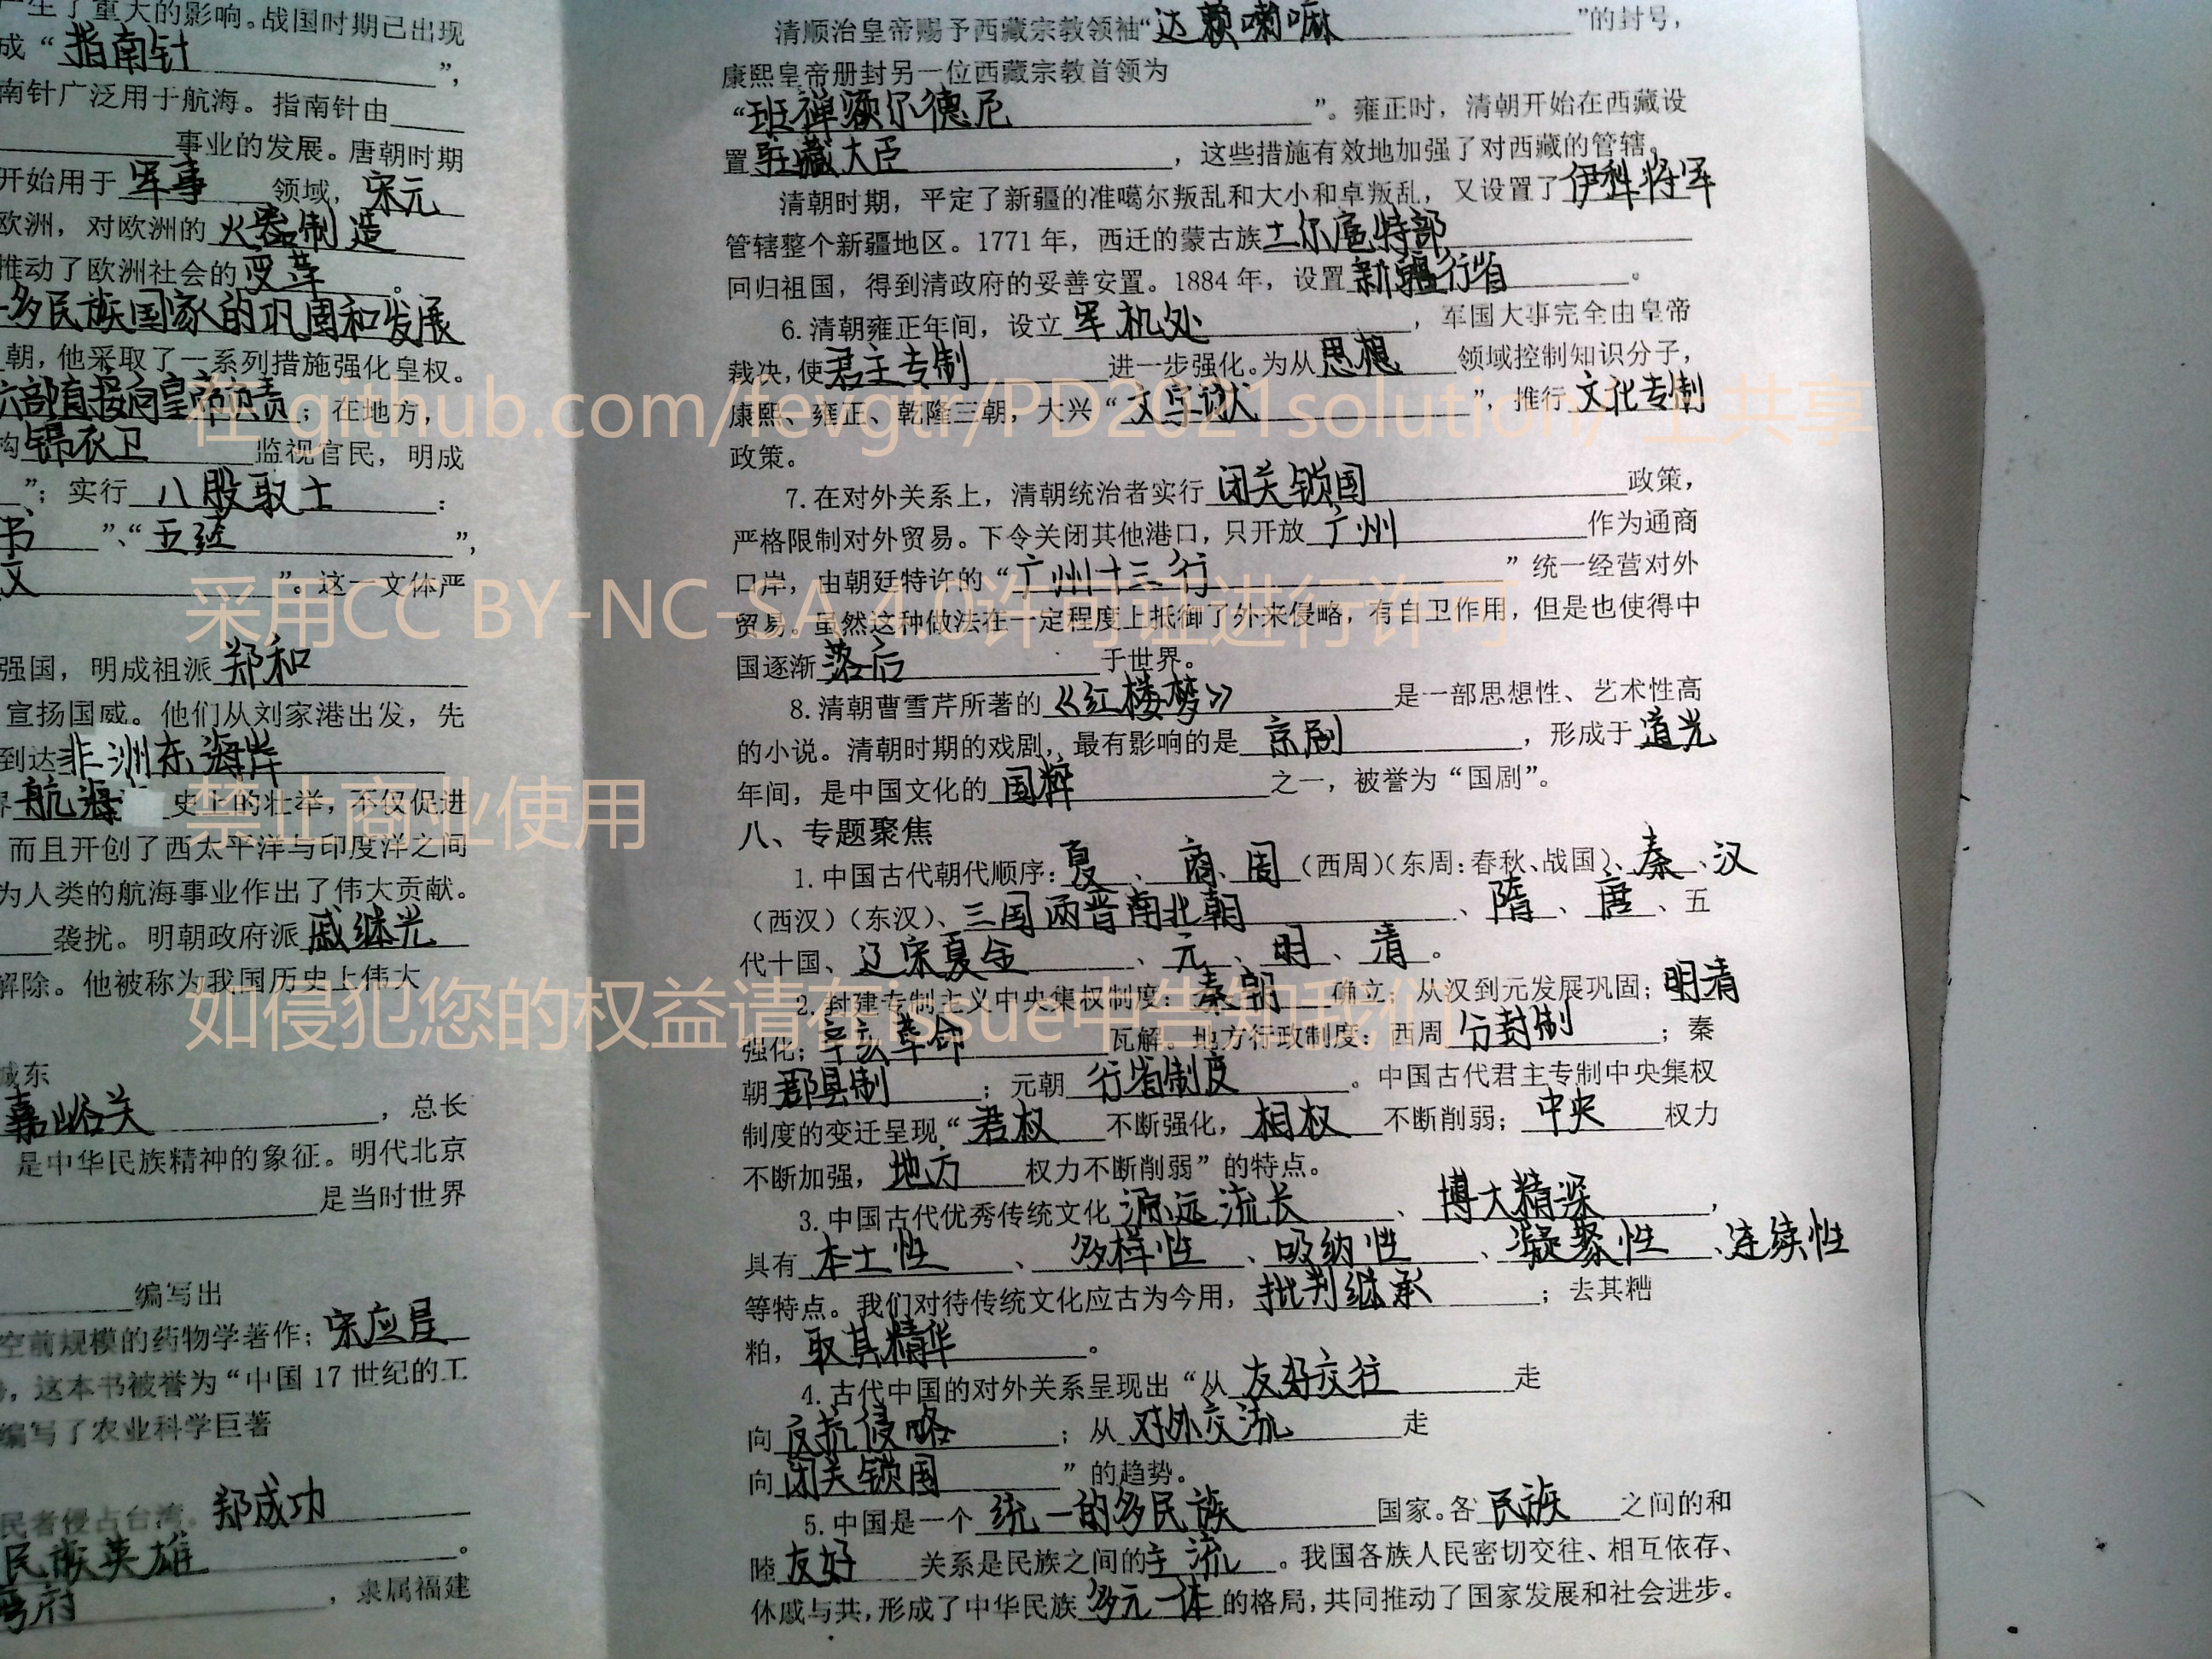 产生了重大的影响。战国时期已出现
成“指南针”，
南针广泛用于航海。指南针由
事业的发展。唐朝时期
开始用于军事领域，宋元
欧洲，对欧洲的火器制造
推动了欧洲社会的变革。
多民族国家的巩固和发展
朝，他采取了一系列措施强化皇权。
六部直接向皇帝负责；在地方，
构锦衣卫监视官民，明成
”；实行八股取士：
书”、“五经”，
文”。这一文体严
强国，明成祖派郑和
宣扬国威。他们从刘家港出发，先
到达非洲东海岸
界航海史上的壮举，不仅促进
而且开创了西太平洋与印度洋之间
为人类的航海事业作出了伟大贡献。
袭扰。明朝政府派戚继光
解除。他被称为我国历史上伟大
城东
嘉峪关，总长
是中华民族精神的象征。明代北京
是当时世界
编写出
空前规模的药物学著作；宋应星
，这本书被誉为“中国17世纪的工
编写了农业科学巨著
民者侵占台湾。郑成功
民族英雄。
湾府，隶属福建
清顺治皇帝赐予西藏宗教领袖“达赖喇嘛”的封号，
康熙皇帝册封另一位西藏宗教首领为
“班禅额尔德尼”。雍正时，清朝开始在西藏设
置驻藏大臣，这些措施有效地加强了对西藏的管辖。
清朝时期，平定了新疆的准噶尔叛乱和大小和卓叛乱，又设置了伊犁将军
管辖整个新疆地区。1771年，西迁的蒙古族土尔扈特部
回归祖国，得到清政府的妥善安置。1884年，设置新疆行省。
6.清朝雍正年间，设立军机处，军国大事完全由皇帝
裁决，使君主专制进一步强化。为从思想领域控制知识分子，
康熙、雍正、乾隆三朝，大兴“文字狱”，推行文化专制
政策。
7.在对外关系上，清朝统治者实行闭关锁国政策，
严格限制对外贸易。下令关闭其他港口，只开放广州作为通商
口岸，由朝廷特许的“广州十三行”统一经营对外
贸易。虽然这种做法在一定程度上抵御了外来侵略，有自卫作用，但是也使得中
国逐渐落后于世界。
8.清朝曹雪芹所著的《红楼梦》是一部思想性、艺术性高
的小说。清朝时期的戏剧，最有影响的是京剧，形成于道光
年间，是中国文化的国粹之一，被誉为“国剧”。
八、专题聚焦
1.中国古代朝代顺序：夏、商、周（西周）（东周：春秋、战国）、秦、汉
（西汉）（东汉）、三国两晋南北朝、隋、唐、五
代十国、辽宋夏金、元、明、清。
2.封建专制主义中央集权制度：秦朝确立；从汉到元发展巩固；明清
强化；辛亥革命瓦解。地方行政制度：西周分封制；秦
朝郡县制；元朝行省制度。中国古代君主专制中央集权
制度的变迁呈现“君权不断强化，相权不断削弱；中央权力
不断加强，地方权力不断削弱”的特点。
3.中国古代优秀传统文化源远流长、博大精深，
具有本土性、多样性、吸纳性、凝聚性、连续性
等特点。我们对待传统文化应古为今用，批判继承；去其糟
粕，取其精华。
4.古代中国的对外关系呈现出“从友好交往走
向反抗侵略；从对外交流走
向闭关锁国”的趋势。
5.中国是一个统一的多民族国家。各民族之间的和
睦友好关系是民族之间的主流。我国各族人民密切交往、相互依存、
休戚与共，形成了中华民族多元一体的格局，共同推动了国家发展和社会进步。
在 github.com/fevgtf/PD2021solution/ 上共享
采用CC BY-NC-SA 4.0许可证进行许可
禁止商业使用
如侵犯您的权益请在issue中告知我们